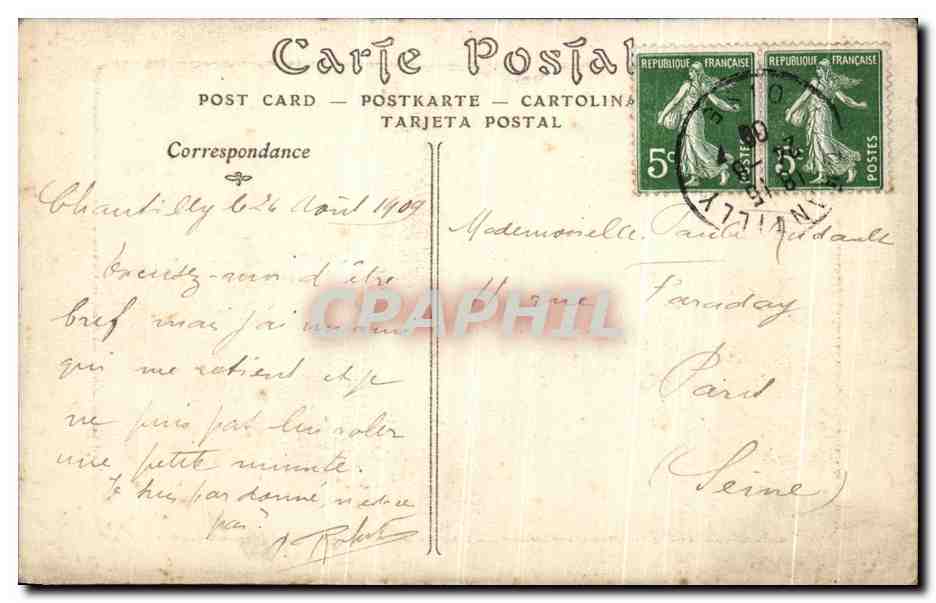 Carte Postal
POST CARD — POSTKARTE — CARTOLINA
TARJETA POSTAL
Correspondance
REPUBLIQUE FRANÇAISE
5c
POSTES
REPUBLIQUE FRANÇAISE
5c
POSTES
OISE
Chantilly le 24 Août 1909
Excusez-moi d'être
bref mais j'ai un
qui me retient et je
ne puis pas lui voler
une petite minute.
Je suis pardonné, n'est-ce
pas?
Robert
Mademoiselle Paule
11 rue Faraday
Paris
(Seine)
CPAPHIL